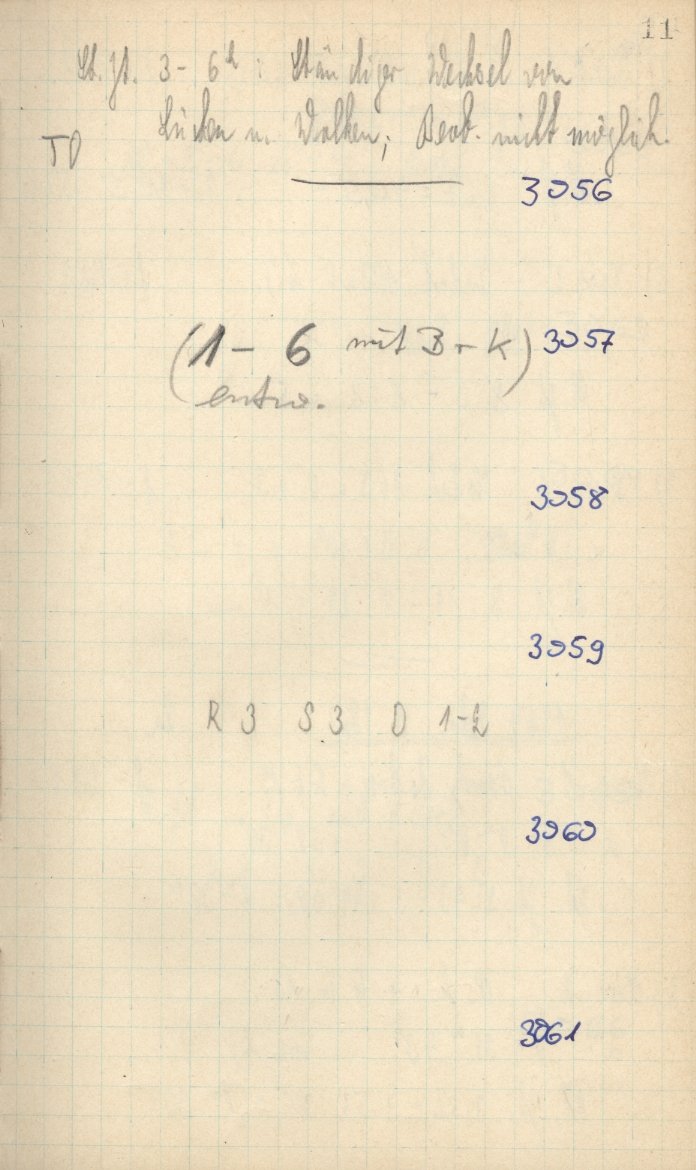 11
St. Zt. 3 - 6h : Ständiger Wechsel von
Lücken u. Wolken; Beob. nicht möglich.
TD
3056
(1 - 6 mit B + K) 3057
entw.
3058
3059
R 3 S 3 D 1-2
3060
3061